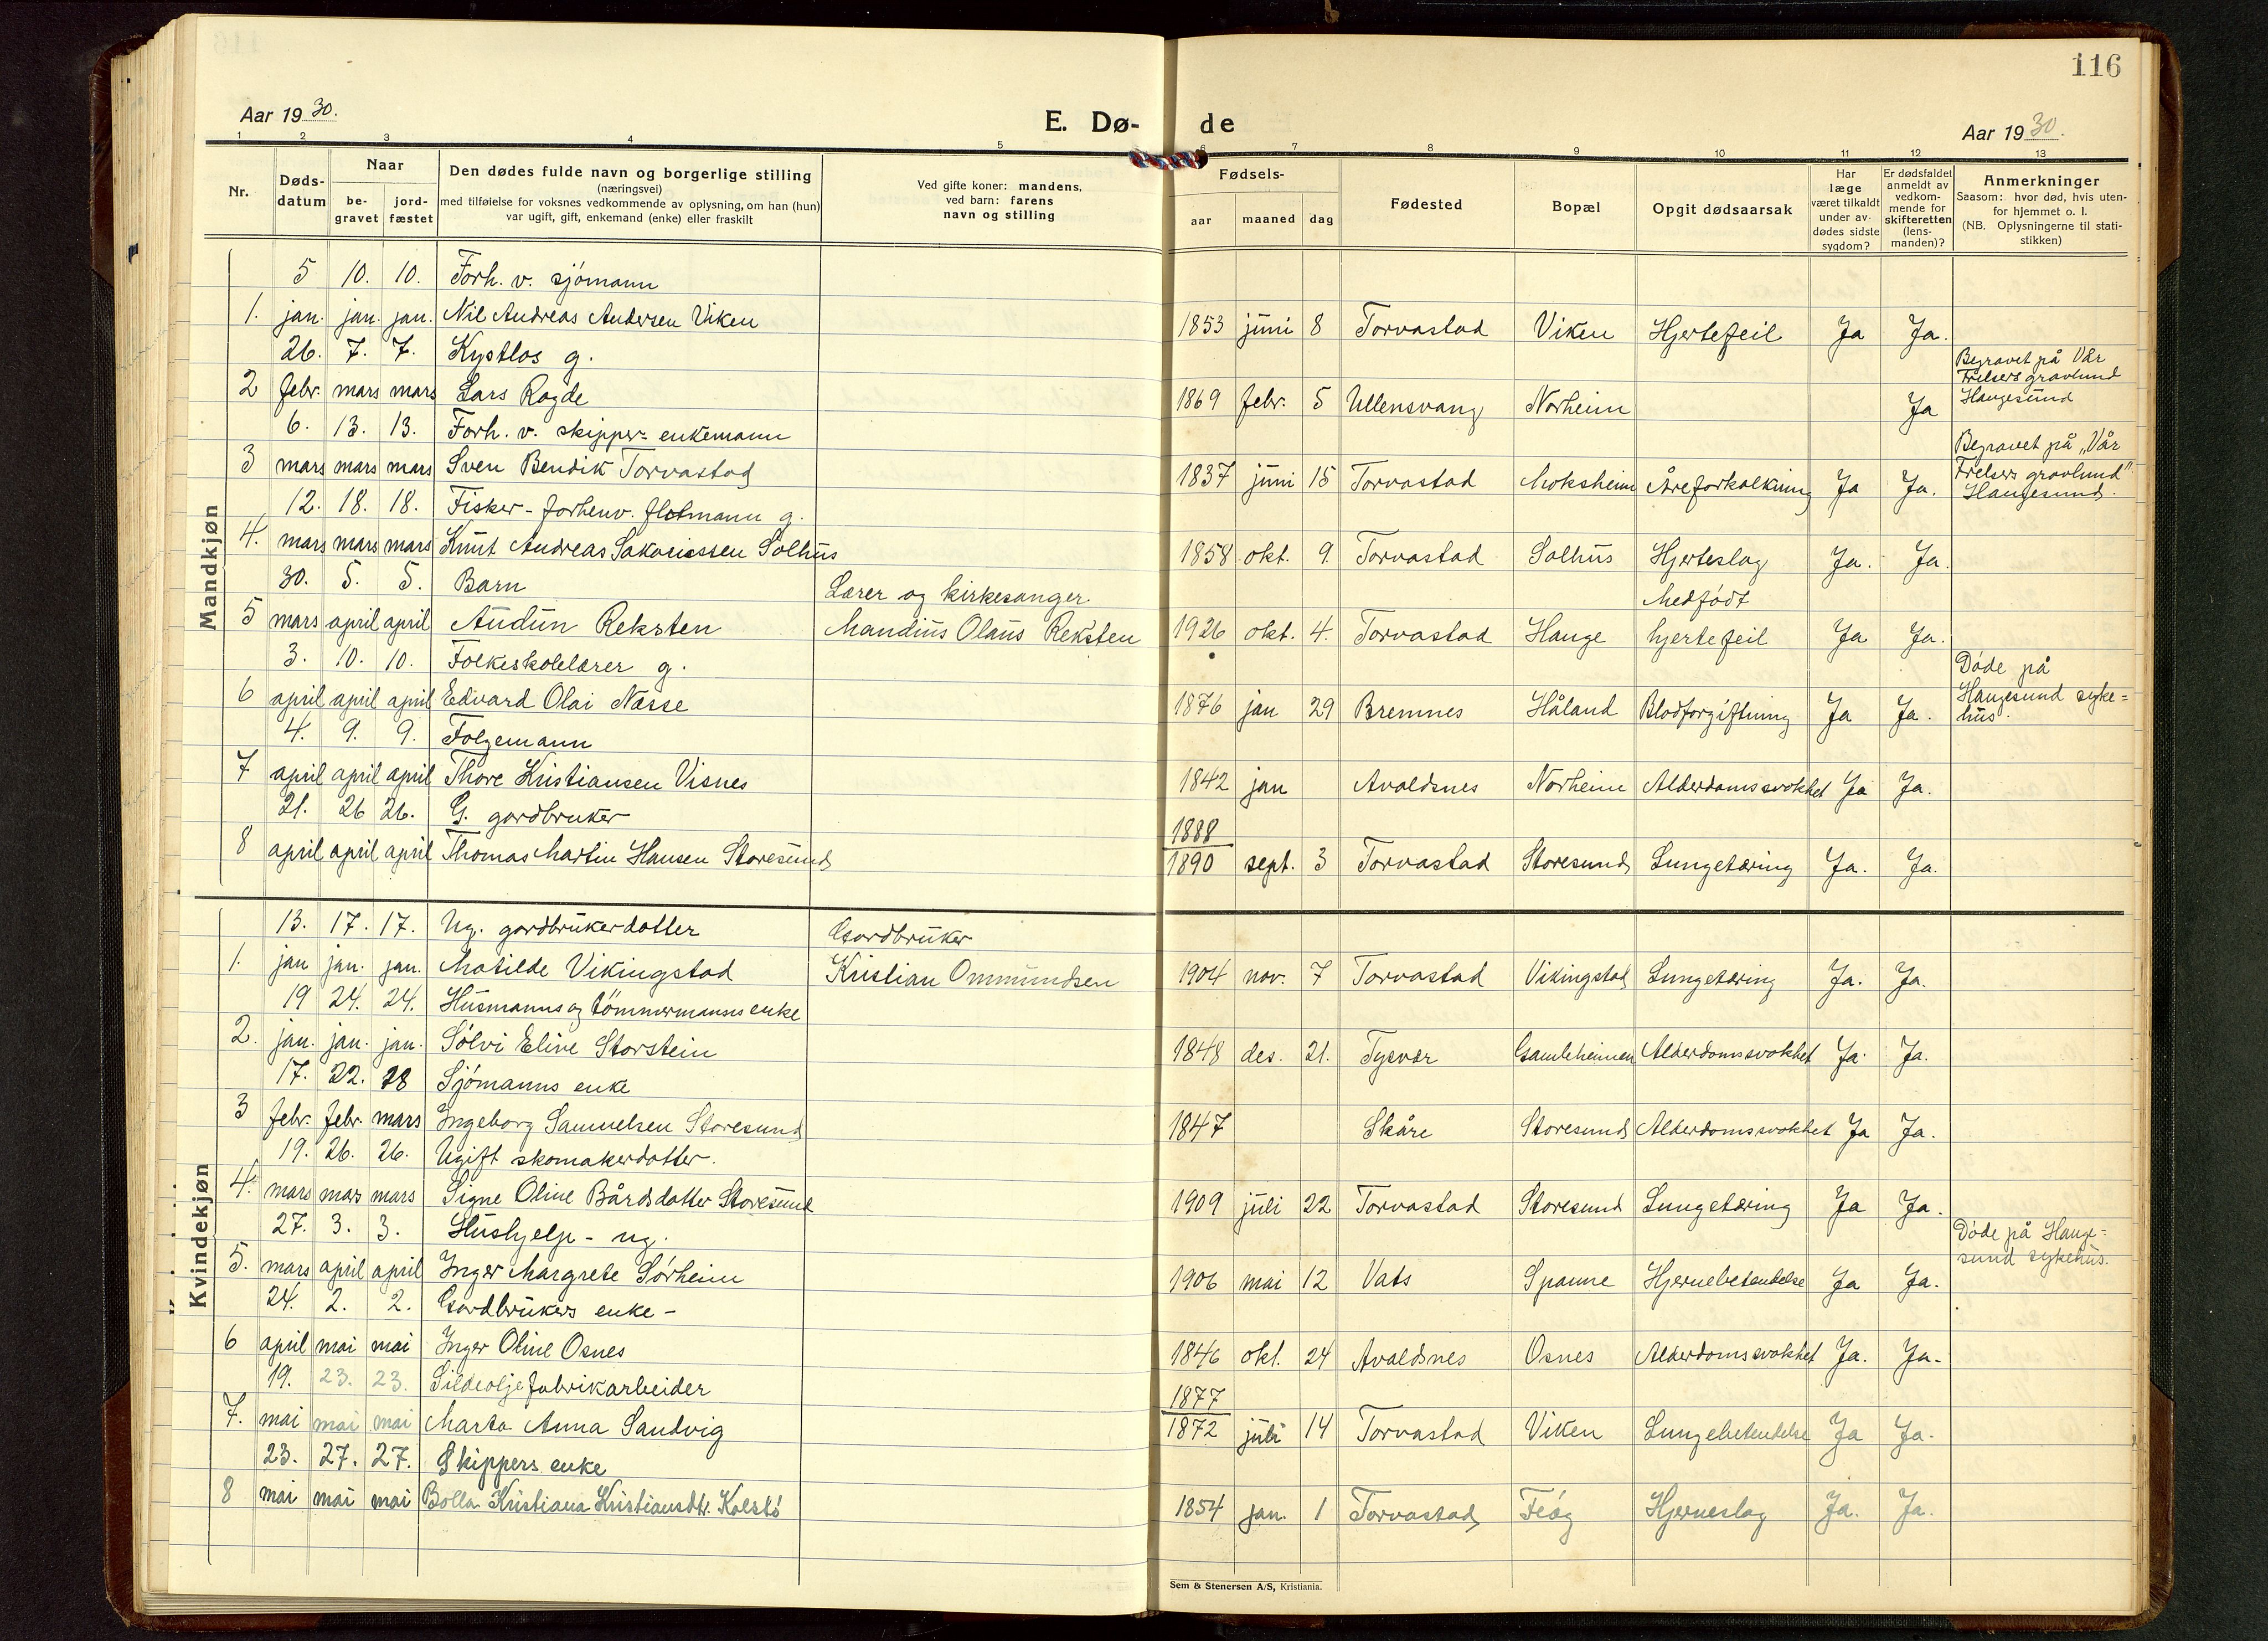 116
Aar 1930.
E. Dø- de
Aar 1930.
1 2 3 4 5 6 7 8 9 10 11 12 13
Nr.
Døds-
datum
Naar
be-
gravet
jord-
fæstet
Den dødes fulde navn og borgerlige stilling
(næringsvei)
med tilføielse for voksnes vedkommende av oplysning, om han (hun)
var ugift, gift, enkemand (enke) eller fraskilt
Ved gifte koner: mandens,
ved barn: farens
navn og stilling
Fødsels-
aar maaned dag
Fødested
Bopæl
Opgit dødsaarsak
Har
læge
været tilkaldt
under av-
dødes sidste
sygdom?
Er dødsfaldet
anmeldt av
vedkom-
mende for
skifteretten
(lens-
manden)?
Anmerkninger
Saasom: hvor død, hvis uten-
for hjemmet o. l.
(NB. Oplysningerne til stati-
stikken)
Mandkjøn
5 10. 10. Forh. v. sjömann
1. jan. jan. jan. Nil Andreas Andersen Viken 1853 juni 8 Torvastad Viken Hjertefeil Ja Ja.
26. 7. 7. Kystlos g.
2 febr. mars mars Lars Ragde 1869 febr. 5 Ullensvang Norheim Ja
Begravet på Vår
Frelsers gravlund
Haugesund
6. 13. 13. Forh. v. skipper- enkemann
3 mars mars mars Sven Bendik Torvastad 1837 juni 15 Torvastad Moksheim Åreforkalkning Ja Ja.
Begravet på „Vår
Frelsers gravlund"
Haugesund.
12. 18. 18. Fisker - forhenv. flotmann g.
4. mars mars mars Knut Andreas Sakariassen Solhus 1858 okt. 9. Torvastad Solhus Hjerteslag Ja. Ja.
30. 5. 5. Barn Lærer og kirkesanger. Medfödt
5 mars april april Audun Reksten Mandius Olaus Reksten 1926 okt. 4. Torvastad Hauge hjertefeil Ja Ja.
3. 10. 10. Folkeskolelærer g.
6 april april april Edvard Olai Næsse 1876 jan 29 Bremnes Håland Blodforgiftning Ja Ja.
Döde på
Haugesund syke=
hus.
4. 9. 9. Folgemann
7 april april april Thore Kristiansen Visnes 1842 jan Avaldsnes Norheim Alderdomssvakhet Ja Ja.
21. 26 26. G. gardbruker 1888
8 april april april Thomas Martin Hansen Storesund 1890 sept. 3 Torvastad Storesund Lungetæring Ja. Ja.
Kvindekjøn
13. 17. 17. Ug. gardbrukerdatter Gardbruker
1. jan jan. jan. Matilde Vikingstad Kristian Ommundsen 1904 nov. 7 Torvastad Vikingstad Lungetæring Ja. Ja.
19 24. 24. Husmanns og tömmermanns enke
2. jan. jan. jan. Sölvi Eline Storstein 1848 des. 21. Tysvær Gamleheimen Alderdomssvakhet Ja. Ja.
17. 22. 28 Sjömanns enke
3 febr. febr. mars Ingeborg Samuelsen Storesund 1847 Skåre Storesund Alderdomssvakhet Ja Ja.
19. 26. 26. Ugift skomakerdatter.
4. mars mars mars Signe Oline Bårdsdatter Storesund 1909 juli 22 Torvastad Storesund Lungetæring Ja Ja.
27. 3. 3. Hushjelp - ug.
5. mars april april Inger Margrete Sörheim 1906 mai 12 Vats Spanne Hjernebetendelse Ja Ja.
Döde på Hauge-
sund sykehus.
24. 2. 2. Gardbrukers enke -
6 april mai mai Inger Oline Osnes 1846 okt. 24 Avaldsnes Osnes Alderdomssvakhet Ja. Ja.
19. 23. 23. Sildeoljefabrikarbeider 1877
7. mai mai mai Marta Anna Sandvig 1872 juli 14 Torvastad Viken Lungebetendelse Ja Ja.
23. 27. 27. Skippers enke
8 mai mai mai Bolla Kristiana Kristiansdtr. Kolstö 1854 jan. 1 Torvastad Feöy Hjerneslag Ja. Ja.
Sem & Stenersen A/S, Kristiania.